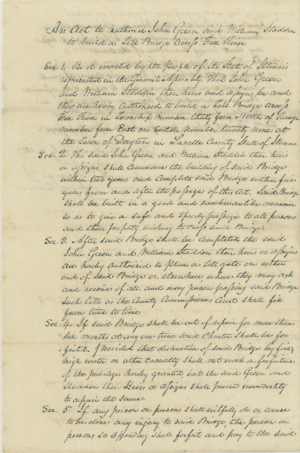 An Act to authorize John Green and William Stadden
to build a Toll Bridge across Fox River
Sec. 1. Be it enacted by the people of the State of Illinois
represented in the General Assembly That John Green
and William Stadden their heirs and assigns be and
they are hereby authorized to build a toll Bridge across
Fox River in Township number thirty four North of Range
number four East on Section Number twenty nine at
the Town of Dayton in Lasalle County State of Illinois
Sec. 2 The said John Green and William Stadden their heirs
or assigns shall commence the building of said Bridge
within two years and complete said Bridge within five
years from and after the passage of this act. Said Bridge
shall be built in a good and workmanlike manner
so as to give a safe and speedy passage to all persons
and their property wishing to cross said Bridge
Sec 3. After said Bridge shall be completed the said
John Green and William Stadden their heirs or assigns
are hereby authorized to place a toll gate on either
end of said Bridge or elsewhere where they may ask
and receive of all and every person passing said Bridge
such toll as the County Commissioners Court shall fix
from time to time
Sec. 4. If said Bridge shall be out of repair for more than
six months at any one time said Charter shall be for
feit. Provided that destruction of said Bridge by fire,
high water or other casualty shall not work a forfeiture
of the privileges hereby granted but the said Green and
Stadden their Heirs or assigns shall proceed immediately
to repair the same
Sec. 5. If any person or persons shall wilfully do or cause
to be done any injury to said Bridge the person or
persons so offending shall forfeit and pay to the said